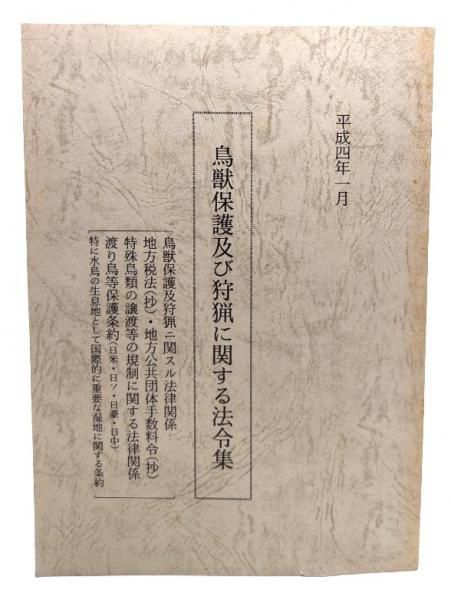 平成四年一月
鳥獣保護及び狩猟に関する法令集
鳥獣保護及狩猟ニ関スル法律関係
地方税法(抄)・地方公共団体手数料令(抄)
特殊鳥類の譲渡等の規制に関する法律関係
渡り鳥等保護条約(日米・日ソ・日豪・日中)
特に水鳥の生息地として国際的に重要な湿地に関する条約